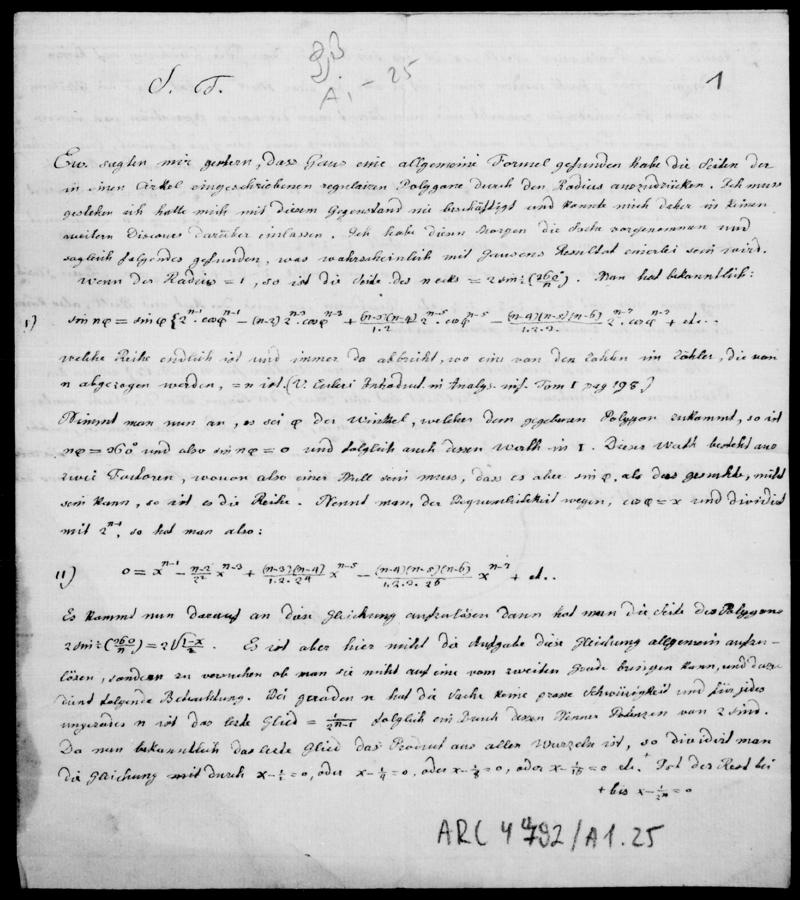 S. T.
A1 - 25
1
Ew. sagten mir gestern, dass Gaus eine allgemeine Formel gefunden habe die Seiten der
in einen Cirkel eingeschriebenen regulairen Polygone durch den Radius auszudrücken. Ich muss
gestehen ich hatte mich mit diesem Gegenstand nie beschäftigt und konnte mich daher in keinen
weitern Discours darüber einlassen. Ich habe diesen Morgen die Sache vorgenommen und
sogleich folgendes gefunden, was wahrscheinlich mit Gausens Resultat einerlei sein wird.
Wenn der Radius = 1, so ist die Seite des n ecks = 2 sin ½ (360°/n). Man hat bekanntlich:
I) sin nφ = sin φ {2^n-1 . cos φ^n-1 − (n-2) 2^n-3 . cos φ^n-3 + (n-3)(n-4)/1.2 2^n-5 . cos φ^n-5 − (n-4)(n-5)(n-6)/1.2.3. 2^n-7 . cos φ^n-7 + etc..
welche Reihe endlich ist und immer da abbricht, wo eine von den Zahlen im Zähler, die von
n abgezogen werden, = n ist. (V. Euleri Introduct. in Analys. inf. Tom I pag 198.)
Nimmt man nun an, es sei φ der Winkel, welcher dem gegebenen Polygon zukommt, so ist
nφ = 360° und also sin nφ = 0 und folglich auch dessen Werth in I. Dieser Werth besteht aus
zwei Factoren, wovon also einer Null sein muss, dass es aber sin φ, als das gesuchte, nicht
sein kann, so ist es die Reihe. Nennt man, der Bequemlichkeit wegen, cos φ = x und dividirt
mit 2^n-1, so hat man also:
II) 0 = x^n-1 − n-2/2² x^n-3 + (n-3)(n-4)/1.2.2⁴ x^n-5 − (n-4)(n-5)(n-6)/1.2.3.2⁶ x^n-7 + etc..
Es kommt nun darauf an diese Gleichung aufzulösen dann hat man die Seite des Polygons
2 sin ½ (360/n) = 2√(1-x/2). Es ist aber hier nicht die Aufgabe diese Gleichung allgemein aufzu-
lösen, sondern zu versuchen ob man sie nicht auf eine vom zweiten Grade bringen kann, und dazu
dient folgende Betrachtung. Bei geraden n hat die Sache keine grosse Schwürigkeit und für jedes
ungerades n ist das letzte Glied = 1/2^n-1 folglich ein Bruch dessen Nenner Potenzen von 2 sind.
Da nun bekanntlich das letzte Glied das Product aus allen Wurzeln ist, so dividirt man
die Gleichung mit durch x − ½ = 0, oder x − ¼ = 0, oder x − ⅛ = 0, oder x − 1/16 = 0 etc. + Ist der Rest bei
+ bis x − 1/2^n = 0
ARC 4° 792/A1.25